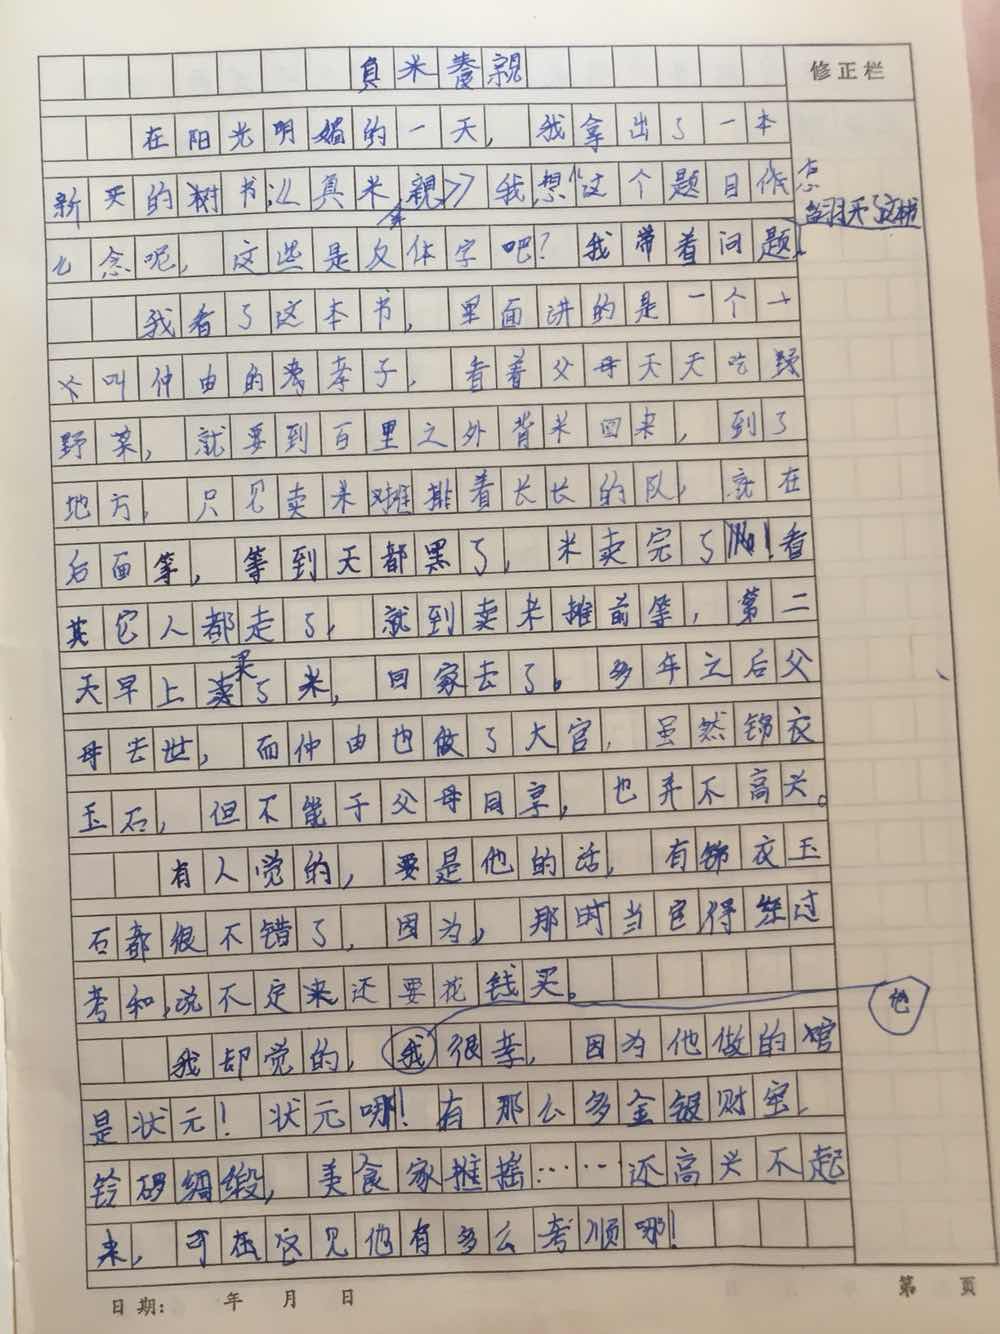 負米養親
修正栏
在阳光明媚的一天，我拿出了一本
新买的树书《真米親》我想"这个题目作怎
么念呢，这些是文体字吧？我带着问题，
我看了这本书，里面讲的是一个一
个叫仲由的孝子，看着父母天天吃野
野菜，就要到百里之外背米回来，到了
地方，只见卖米摊排着长长的队，就在
后面等，等到天都黑了，米卖完了！看
其它人都走了，就到卖米摊前等，第二
天早上买了米，回家去了。多年之后父
母去世，而仲由也做了大官，虽然锦衣
玉石，但不能于父母同享，也弄不高兴。
有人觉的，要是他的话，有锦衣玉
石都很不错了，因为，那时当官得经过
考和，说不定来还要花钱买。
我却觉的，我很孝，因为他做的官
他
是状元！状元哪！有那么多金银财宝，
绸缎，美食家推摇……还高兴不起
来，可在这见他有多么孝顺哪！
日期： 年 月 日
第 页